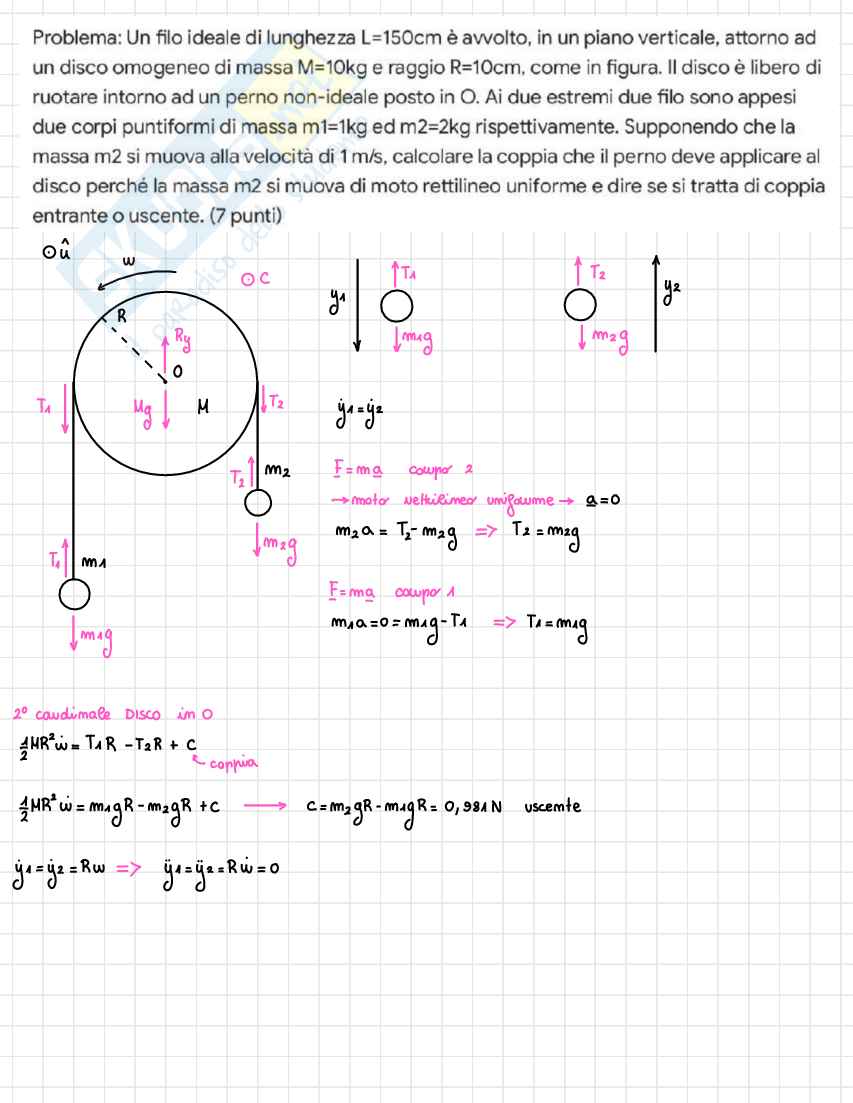 Problema: Un filo ideale di lunghezza L=150cm è avvolto, in un piano verticale, attorno ad
un disco omogeneo di massa M=10kg e raggio R=10cm, come in figura. Il disco è libero di
ruotare intorno ad un perno non-ideale posto in O. Ai due estremi due filo sono appesi
due corpi puntiformi di massa m1=1kg ed m2=2kg rispettivamente. Supponendo che la
massa m2 si muova alla velocità di 1 m/s, calcolare la coppia che il perno deve applicare al
disco perché la massa m2 si muova di moto rettilineo uniforme e dire se si tratta di coppia
entrante o uscente. (7 punti)
⊙û
w
⊙C
R
Ry
O
Mg
M
T1
T2
T2
m2
m2g
T1
m1
m1g
y1
T1
m1g
T2
m2g
y2
ẏ1=ẏ2
F=ma corpo 2
→moto rettilineo uniforme→ a=0
m2a = T2-m2g => T2=m2g
F=ma corpo 1
m1a=0=m1g-T1 => T1=m1g
2° cardinale DISCO in O
1/2MR²ẇ= T1R -T2R + C
coppia
1/2MR²ẇ=m1gR-m2gR +C → C=m2gR-m1gR= 0,981N uscente
ẏ1=ẏ2=Rw => ÿ1=ÿ2=Rẇ=0